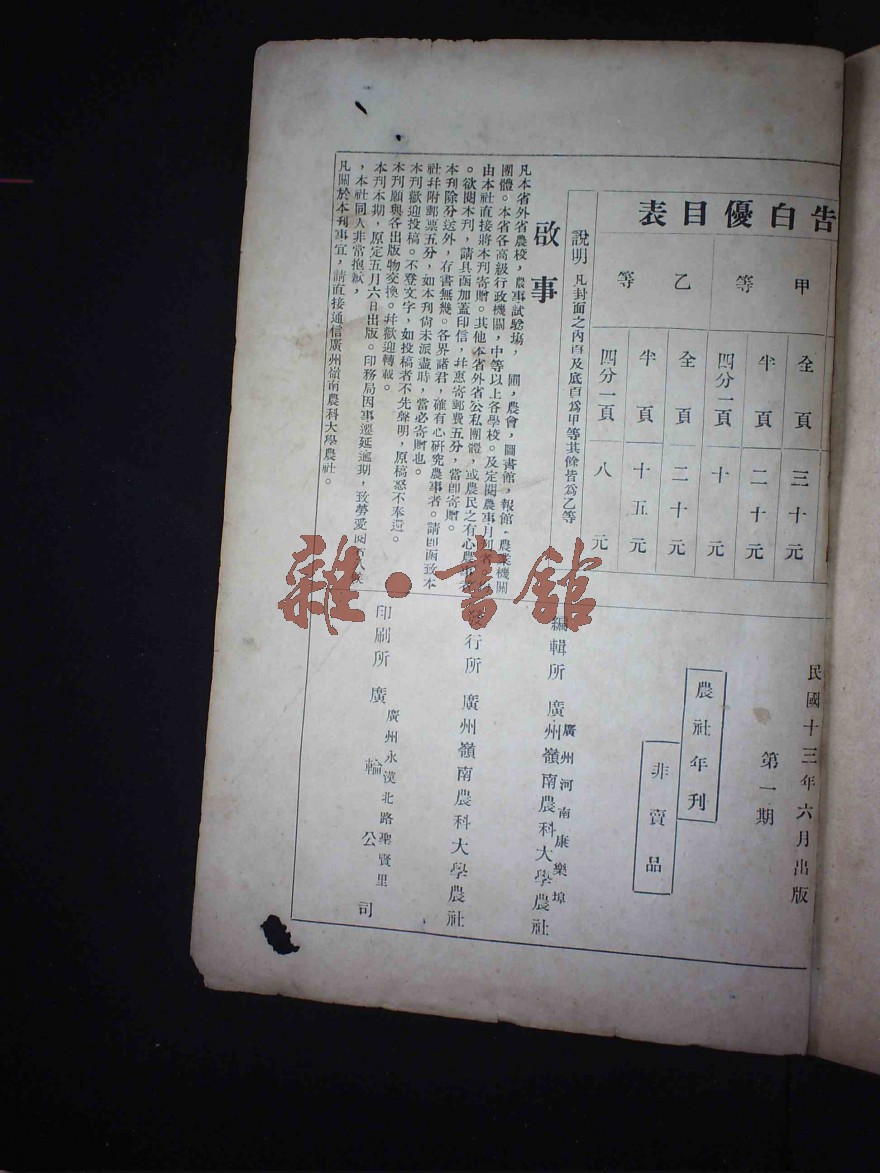 告白優目表
甲等
全頁 三十元
半頁 二十元
四分一頁 十元
乙等
全頁 二十元
半頁 十五元
四分一頁 八元
說明 凡封面之內頁及底頁爲甲等其餘皆爲乙等
啟事
凡本省外省農校，農事試騐塲，圃，農會，圖書館，報館，農業機關
團體。本省各高級行政機關，中等以上各學校。及定閱農事月刊者
由本社直接將本刊寄贈。其他本省外省公私團體，或農民之有心農
。欲閱本刊，請具函加蓋印信，幷惠寄郵費五分，當卽寄贈。
本刊除分送外，存書無幾。各界諸君，確有心研究農事者。請卽函致本
社幷附郵票五分，如本刊尙未派盡時，當必寄贈也。
本刊歡迎投稿。不登文字，如投稿者不先聲明，原稿恕不奉還。
本刊願與各出版物交換。幷歡迎轉載。
本刊本期，原定五月六日出版。印務局因事遷延逾期，致勞愛閱
，本社同人非常抱歉，
凡關於本刊事宜，請直接通信廣州嶺南農科大學農社。
民國十三年六月出版
第一期
農社年刊
非賣品
廣州河南康樂埠
編輯所 廣州嶺南農科大學農社
發行所 廣州嶺南農科大學農社
廣州永漢北路聖賢里
印刷所 廣輪公司
雜·書館